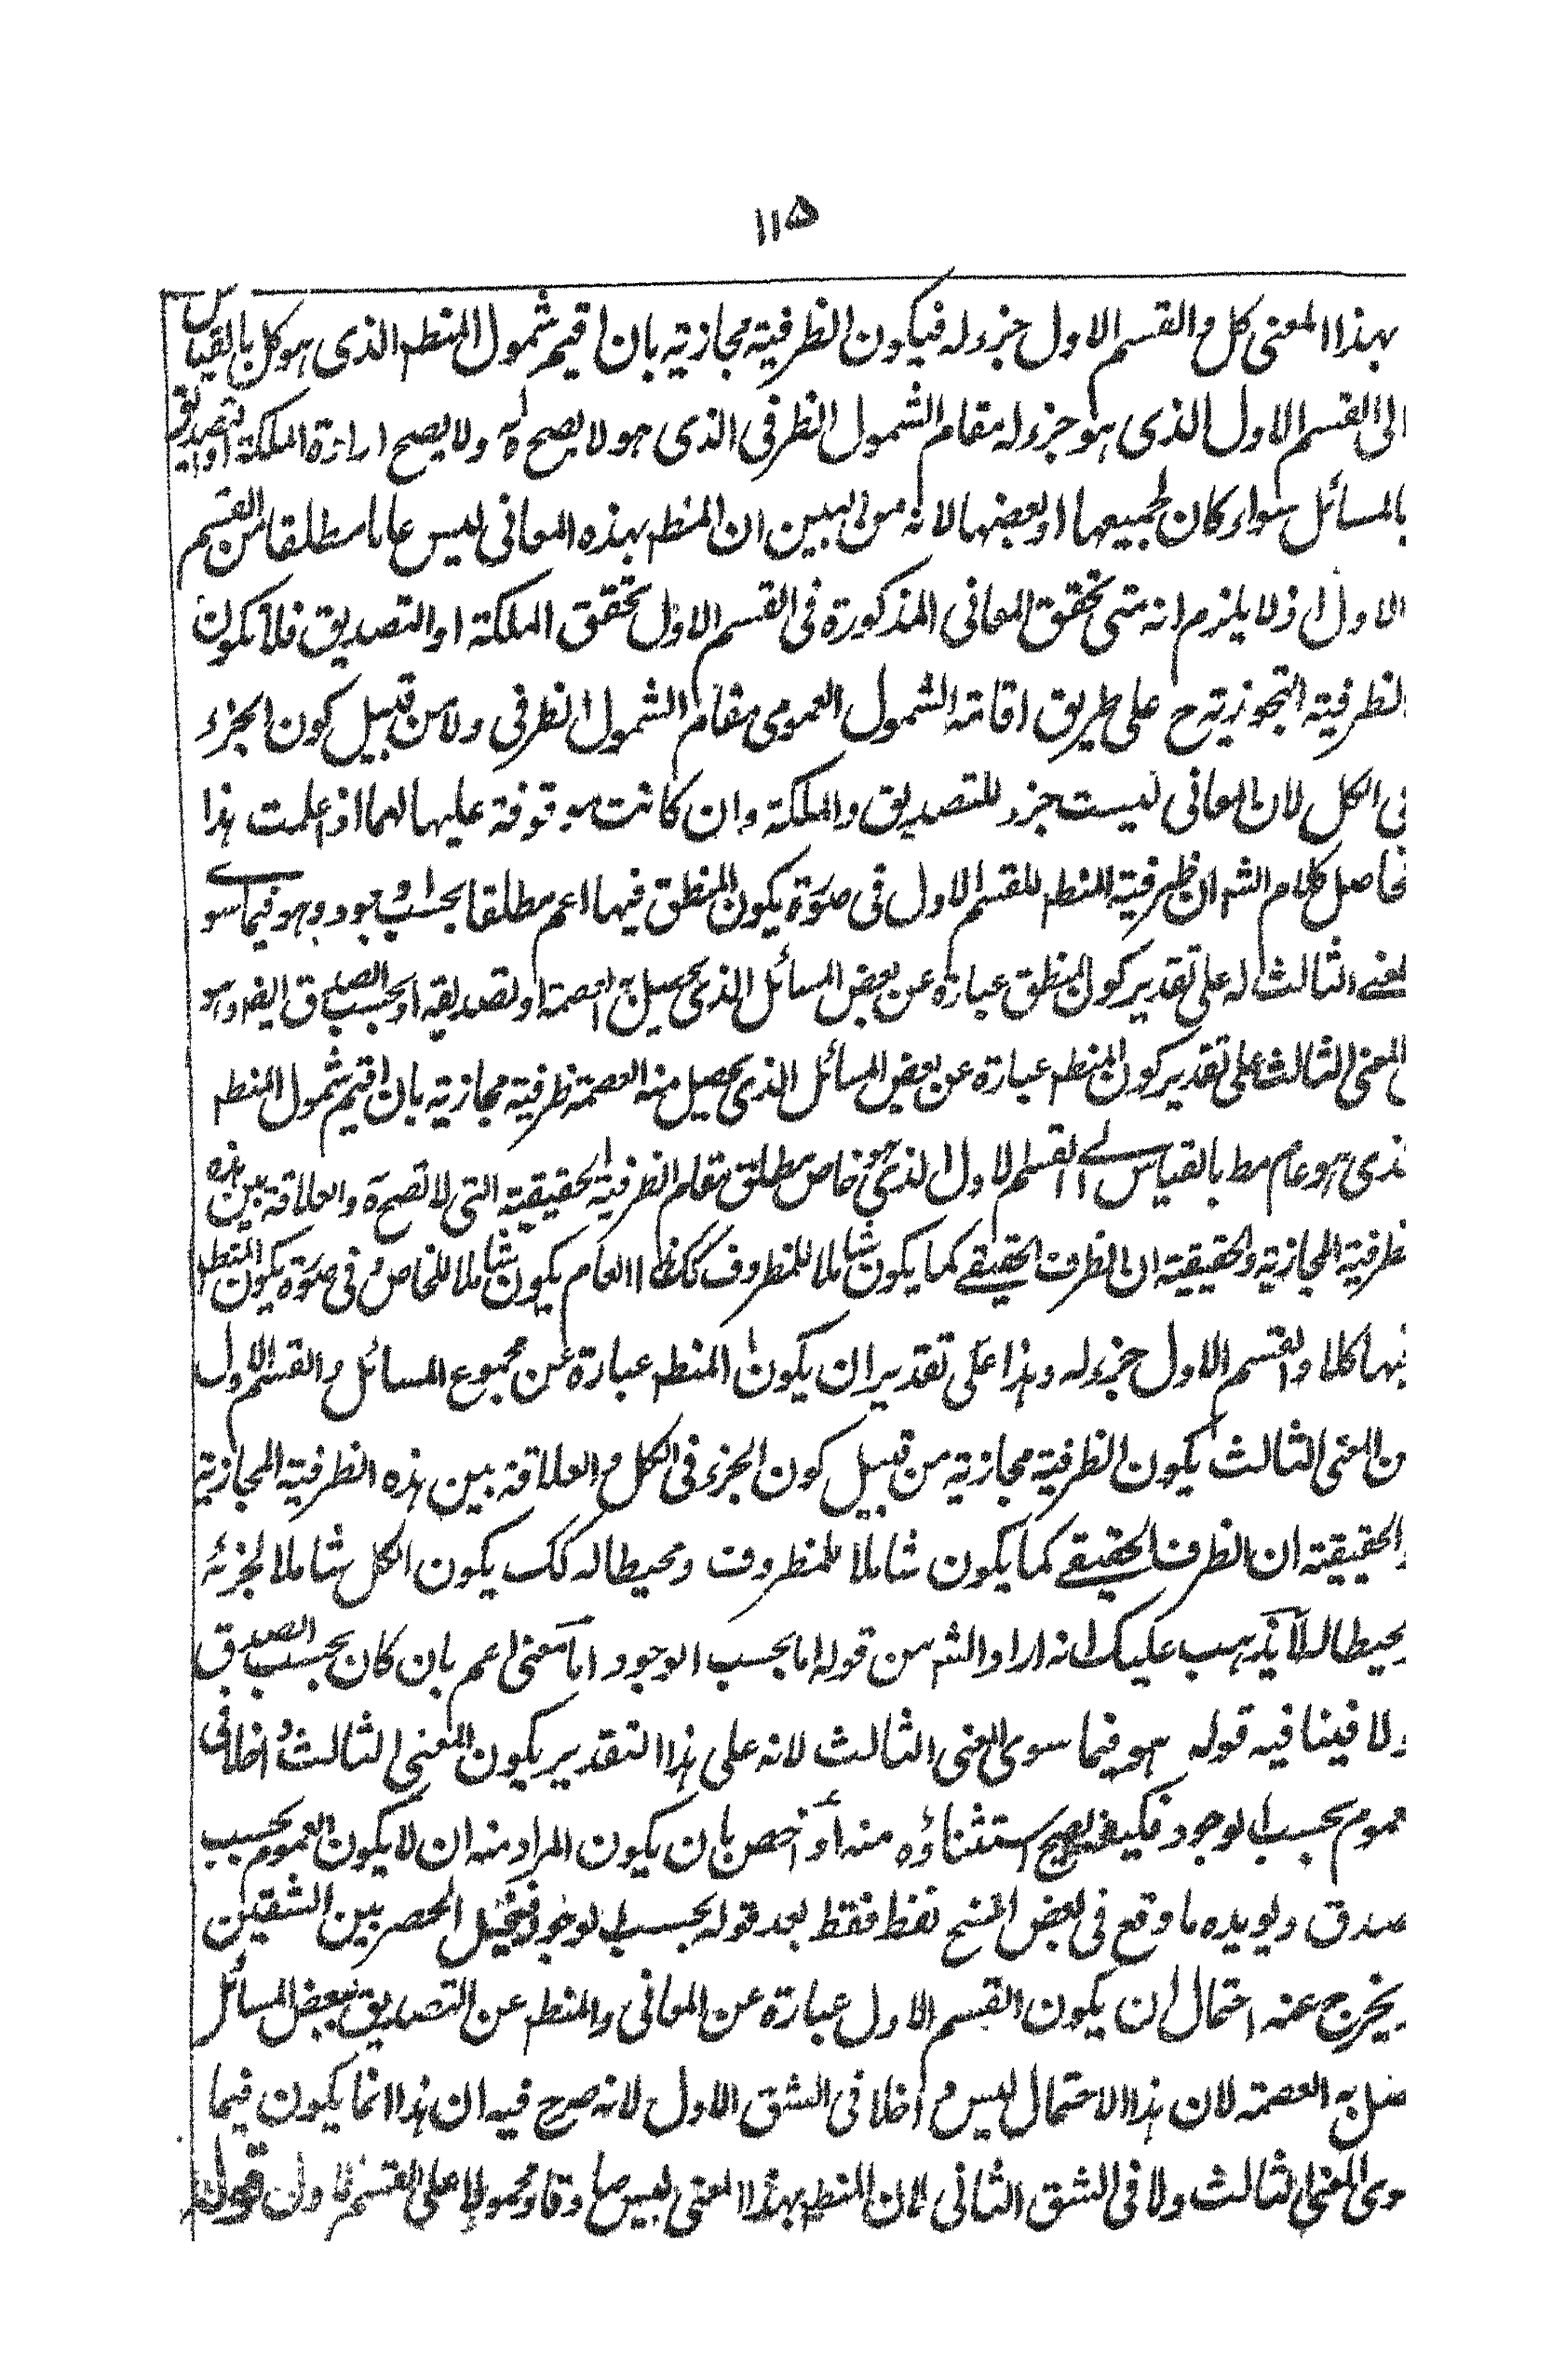 ١١٥
بهذا المعنى كل والقسم الاول جزء له فيكون الظرفية مجازية بان اقيم شمول المنطه الذى هو كل بالقياس
الى القسم الاول الذى هو جزء له مقام الشمول الظرفى الذى هو لا يصح له ولا يصح ارادة الملكة او التصديق
بالمسائل سواء كان لجميعها او بعضها لانه من البين ان المنطه بهذه المعانى ليس عاما مطلقا من القسم
الاول اذ لا يلزم انه متى تحقق المعانى المذكورة فى القسم الاول تحقق الملكة او التصديق فلا تكون
الظرفية التجوزية ح على طريق اقامة الشمول العمومى مقام الشمول الظرفى ولا من قبيل كون الجزء
فى الكل لان المعانى ليست جزء للتصديق والملكة وان كانت موقوفة عليها لهما اذا علمت هذا
فحاصل كلام الشه ان ظرفية المنطه للقسم الاول فى صورة يكون المنطق فيها اعم مطلقا بحسب الوجود وهو فيما سوے
المعنے الثالث له على تقدير كون المنطق عبارة عن بعض المسائل الذى يحصل به العصمة او تصديقه او بحسب الصدق ايضا وهو
المعنى الثالث على تقدير كون المنطه عبارة عن بعض المسائل الذى يحصل منه العصمة ظرفية مجازية بان اقيم شمول المنطه
الذى هو عام مط بالقياس الے القسم الاول الذى هو خاص مطلق مقام الظرفية الحقيقية التى لا تصح ة والعلاقة بين هذه
الظرفية المجازية والحقيقية ان الظرف الحقيقے كما يكون شاملا للمظروف كك هذا العام يكون شاملا للخاص و فى صورة يكون المنطه
فيها كلا والقسم الاول جزء له وهذا على تقدير ان يكون المنطه عبارة عن مجموع المسائل والقسم الاول
من المعنى الثالث يكون الظرفية مجازية من قبيل كون الجزء فى الكل والعلاقة بين هذه الظرفية المجازية
والحقيقية ان الظرف الحقيقے كما يكون شاملا للمظروف ومحيطا له كك يكون الكل شاملا لجزئه
ومحيطا له لا يذهب عليك انه اراد الشه من قوله اما بحسب الوجود اما معنى اعم بان كان بحسب الصدق
ولا فينافيه قوله هو فيما سوى المعنى الثالث لانه على هذا التقدير يكون المعنى الثالث داخلا فى
عموم بحسب الوجود فكيف يصح استثناؤه منه او اخص بان يكون المراد منه ان لا يكون العموم بحسب
صدق ويويده ما وقع فى بعض النسخ لفظ فقط بعد قوله بحسب الوجود فيختل الحصر بين الشقين
ويخرج عنه احتمال ان يكون القسم الاول عبارة عن المعانى والمنطه عن التصديق ببعض المسائل
حصل به العصمة لان هذا الاحتمال ليس داخلا فى الشق الاول لانه صرح فيه ان هذا انما يكون فيما
سوى المعنى الثالث ولا فى الشق الثانى لان المنطه بهذا المعنى ليس صادقا ومحمولا على القسم الاول